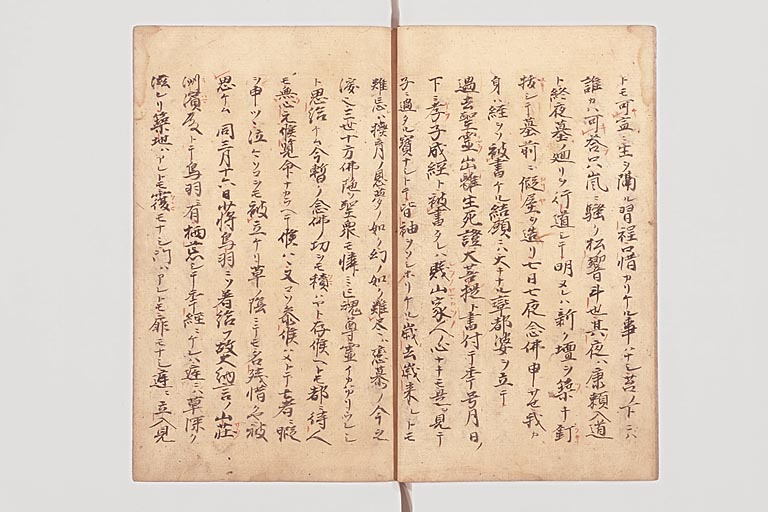 トモ可宣ニ生ヲ隔ル習程口惜カリケル事ハナシ苔ノ下ニハ
誰カハ可答只嵐ニ騒ク松響斗也其夜ハ康頼入道
ト終夜墓ノ廻リヲ行道シテ明ヌレハ新ク壇ヲ築キ釘
抜シテ墓前ニ假屋ヲ造リ七日七夜念佛申サセ我カ
身ハ経ヲソ被書ケル結願ニハ大キナル率都婆ヲ立テ
過去聖霊出離生死證大菩提ト書付テ年号月日ノ
下ニ孝子成経ト被書タレハ賎山家人心ナキモ是ヲ見テ
子ニ過タル寳ナシトテ皆袖ヲソシホリケル歳去歳来レトモ
難忘ハ撫育ノ恩夢ノ如ク幻ノ如ク難尽ハ恋慕ノ今之
涙也三世十方佛陁ノ聖衆モ憐ミ玉ヒ亡魂尊霊イカナリウレシ
ト思給ケム今暫ノ念佛功ヲモ積ハヤト存候ヘトモ都ニ待人
モ無心元候覧命ナカラヘテ候ハヽ又コソ参候ハメトテ亡者ニ暇
ヲ申ツヽ泣々ソコヲモ被立ケリ草ノ陰ニテモ名残惜クヤ被
思ケム同三月十六日少将鳥羽ニソ着給フ故大納言ノ山荘
洲濱殿トテ鳥羽ニ有栖荒シテ年経ニケレハ庭ニハ草深ク
滋レリ築地ハアレトモ覆モナシ門ハアレトモ扉モナシ庭ニ立入見